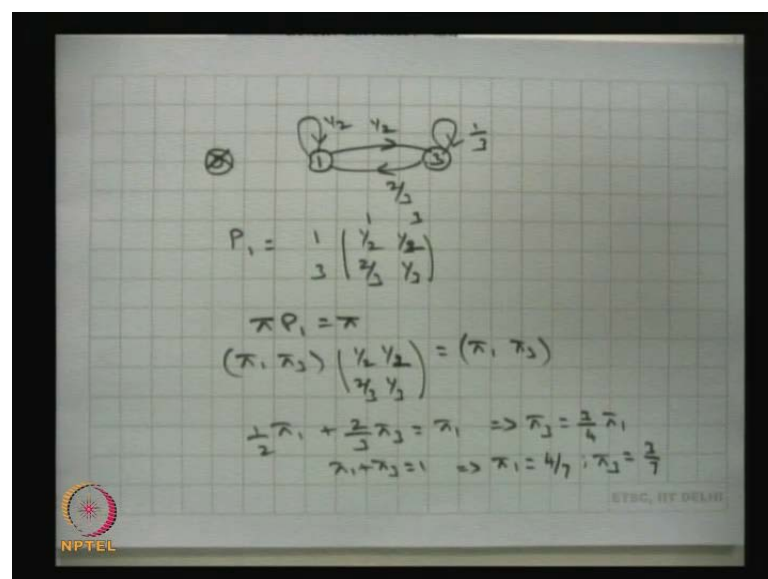 1/2 1/2 1/3
1 3
2/3
1 3
P₁ = 1 ( 1/2 1/2
3 2/3 1/3 )
π P₁ = π
(π₁ π₃) ( 1/2 1/2 2/3 1/3 ) = (π₁ π₃)
1/2 π₁ + 2/3 π₃ = π₁ => π₃ = 3/4 π₁
π₁ + π₃ = 1 => π₁ = 4/7 ; π₃ = 3/7
ETSC, IIT DELHI
NPTEL